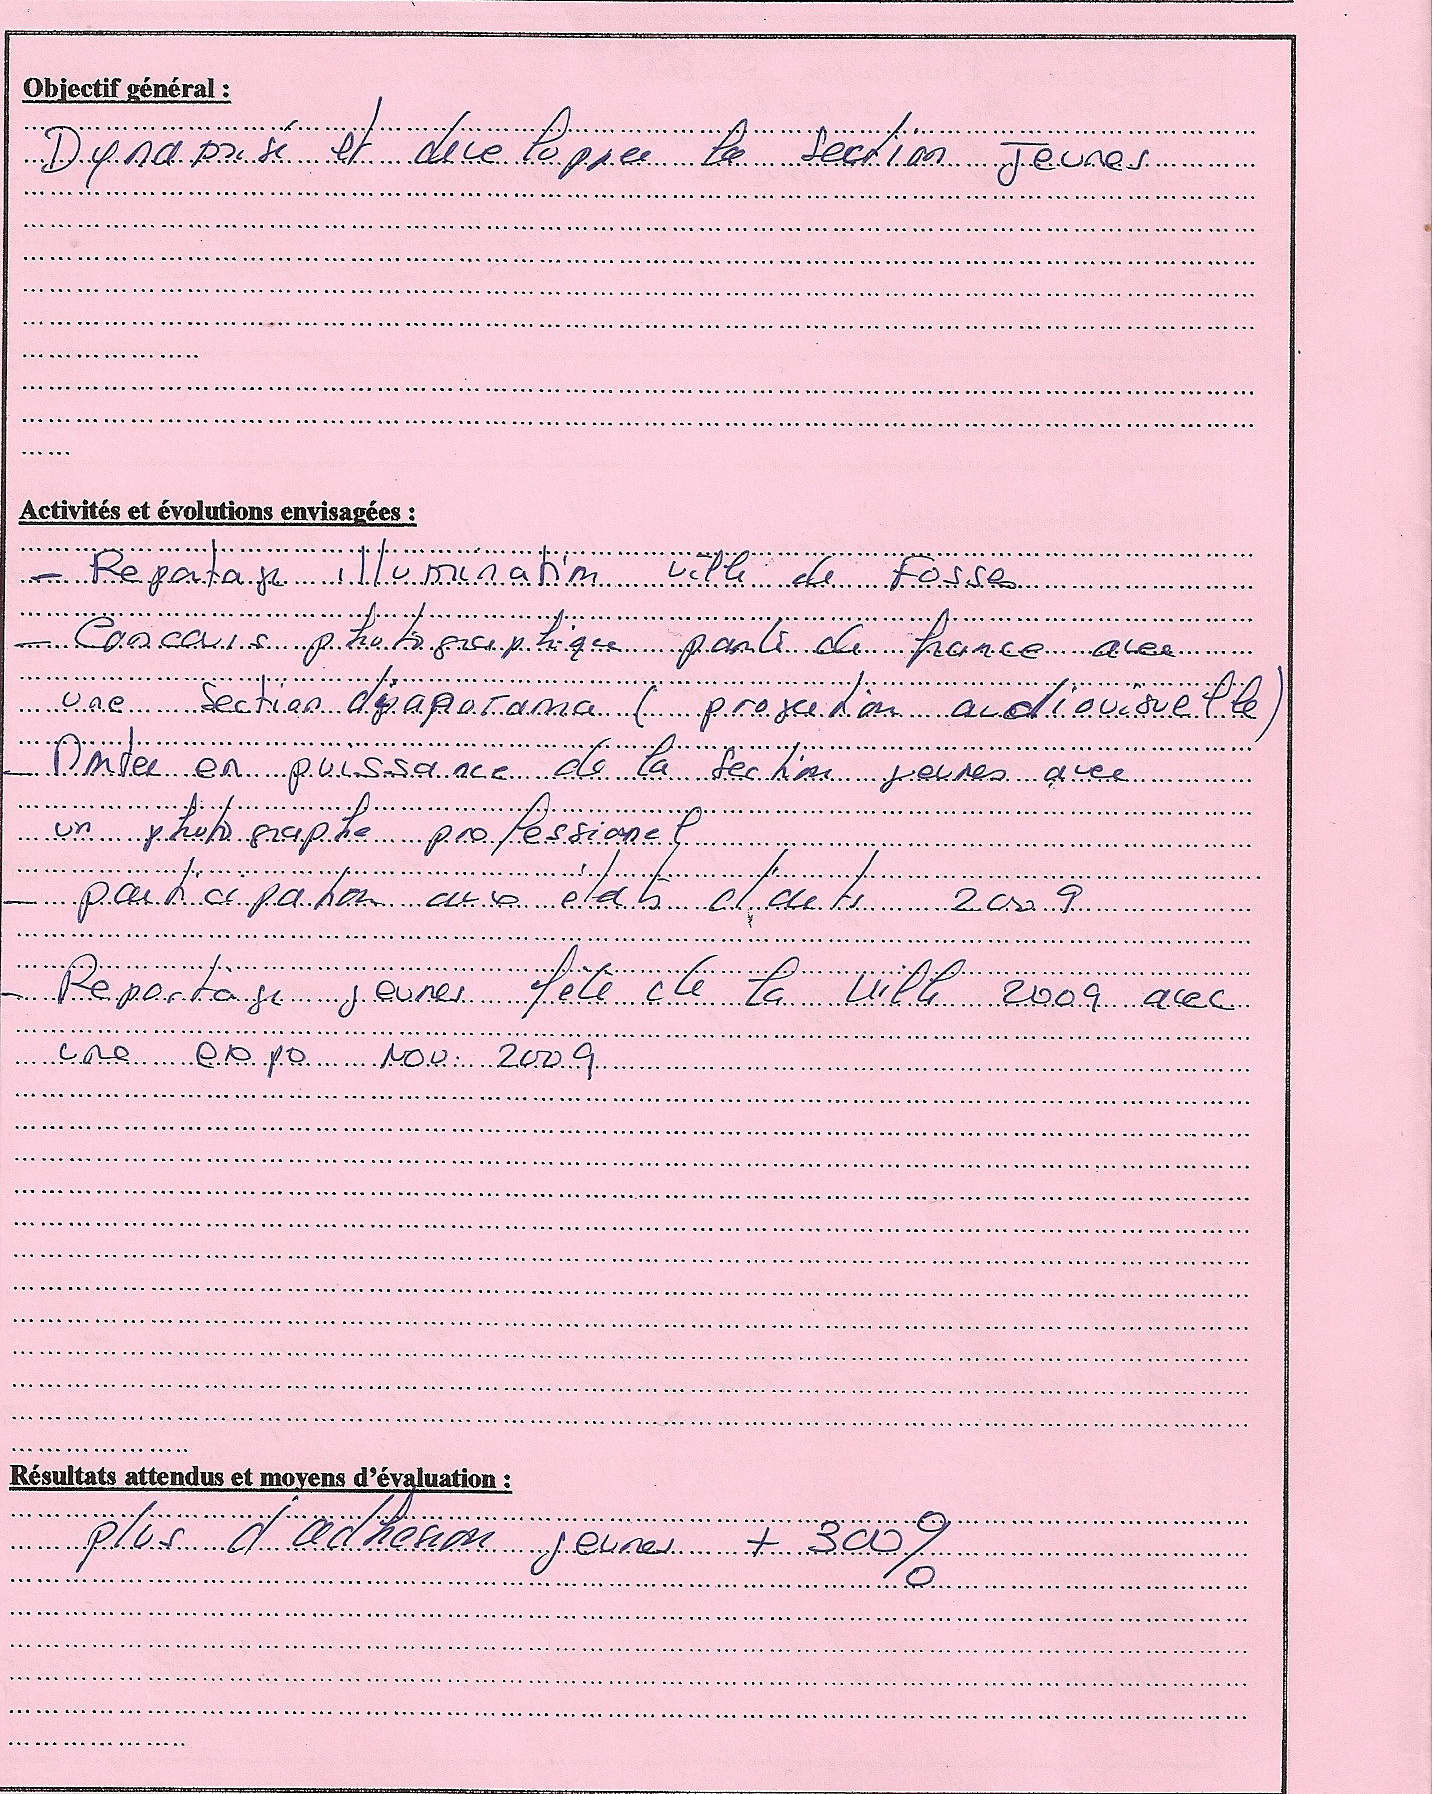 Objectif général :
Dynamisé et developper la section Jeunes
Activités et évolutions envisagées :
- Reportage illumination ville de Fosses
- Concours photographique parti de france avec
une section diaporama ( projection audiovisuelle)
- Montée en puissance de la section jeunes avec
un photographe professionel
- participation aux états d'arts 2009
- Reportage jeunes fête de la ville 2009 avec
une expo Nov. 2009
Résultats attendus et moyens d'évaluation :
plus d'adhesion jeunes + 300%